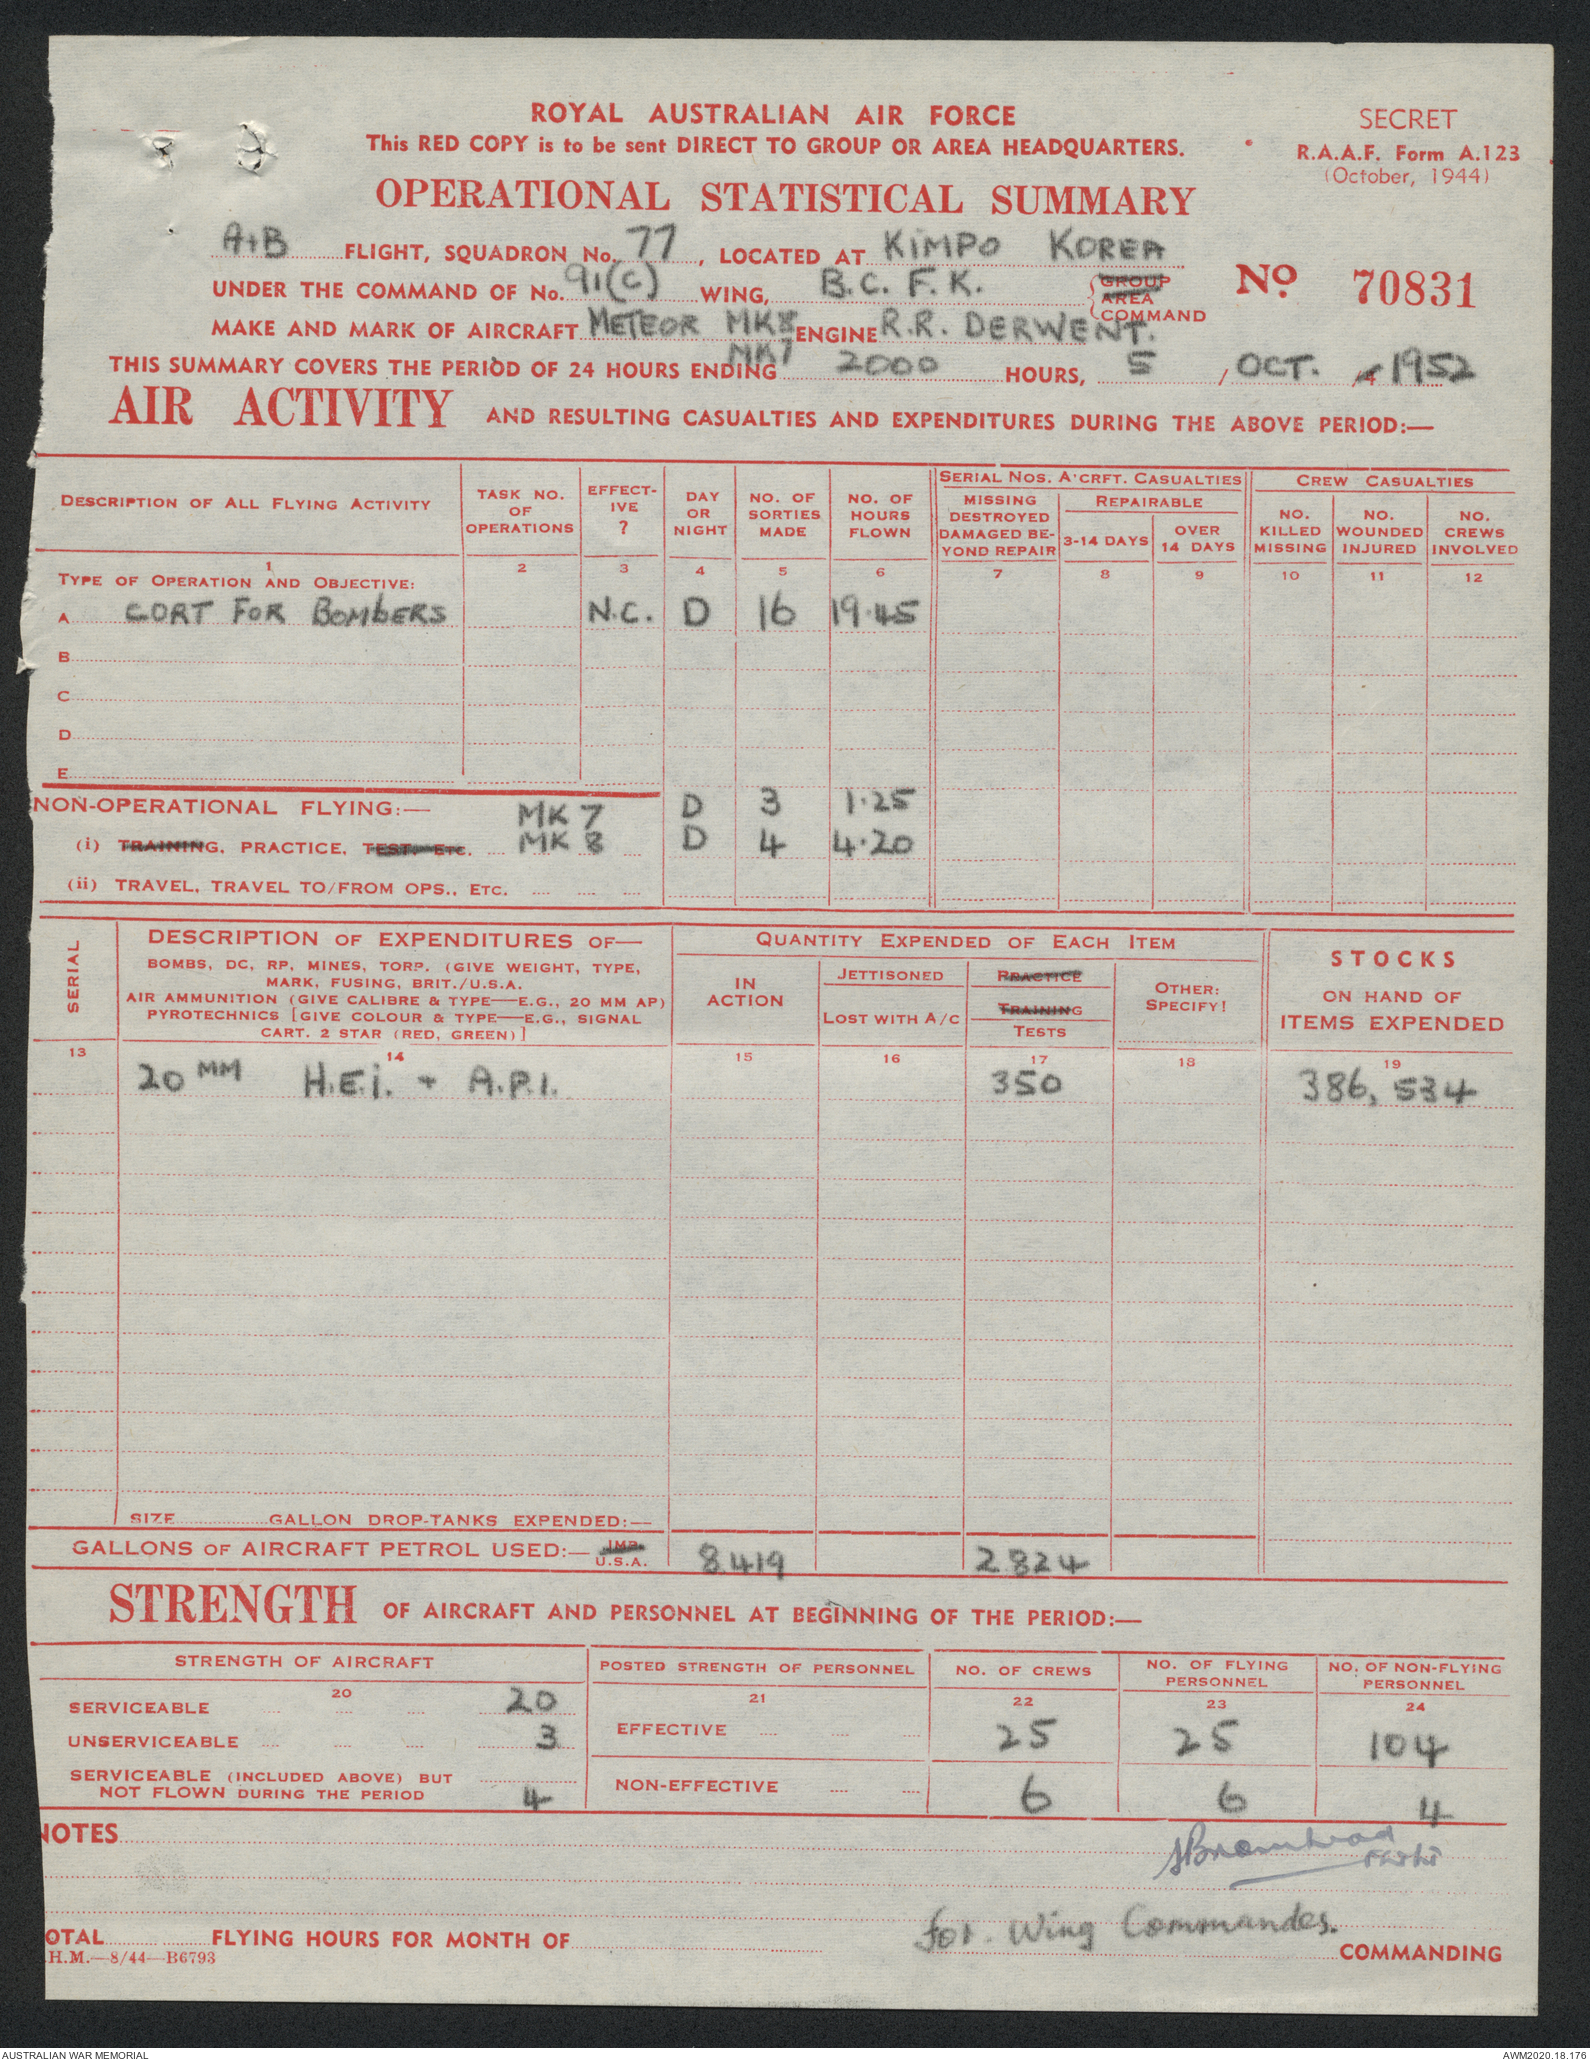 ROYAL AUSTRALIAN AIR FORCE
This RED COPY is to be sent DIRECT TO GROUP OR AREA HEADQUARTERS.
SECRET
R.A.A.F. Form A.123
(October, 1944)
OPERATIONAL STATISTICAL SUMMARY
A+B FLIGHT, SQUADRON No. 77, LOCATED AT KIMPO KOREA
UNDER THE COMMAND OF No. 91(C) WING, B.C.F.K. GROUP AREA COMMAND
No. 70831
MAKE AND MARK OF AIRCRAFT METEOR MK8 ENGINE R.R. DERWENT.
MK7
THIS SUMMARY COVERS THE PERIOD OF 24 HOURS ENDING 2000 HOURS, 5 / OCT. /1952
AIR ACTIVITY AND RESULTING CASUALTIES AND EXPENDITURES DURING THE ABOVE PERIOD:—
DESCRIPTION OF ALL FLYING ACTIVITY
TASK NO. OF OPERATIONS
EFFECTIVE ?
DAY OR NIGHT
NO. OF SORTIES MADE
NO. OF HOURS FLOWN
SERIAL NOS. A'CRFT. CASUALTIES
MISSING DESTROYED DAMAGED BEYOND REPAIR
REPAIRABLE
3-14 DAYS
OVER 14 DAYS
CREW CASUALTIES
NO. KILLED MISSING
NO. WOUNDED INJURED
NO. CREWS INVOLVED
1 2 3 4 5 6 7 8 9 10 11 12
TYPE OF OPERATION AND OBJECTIVE:
A CORT FOR BOMBERS N.C. D 16 19.45
B
C
D
E
NON-OPERATIONAL FLYING:— MK 7 D 3 1.25
(i) TRAINING, PRACTICE, TEST, ETC. MK 8 D 4 4.20
(ii) TRAVEL, TRAVEL TO/FROM OPS., ETC.
SERIAL
DESCRIPTION OF EXPENDITURES OF—
BOMBS, DC, RP, MINES, TORP. (GIVE WEIGHT, TYPE,
MARK, FUSING, BRIT./U.S.A.
AIR AMMUNITION (GIVE CALIBRE & TYPE—E.G., 20 MM AP)
PYROTECHNICS [GIVE COLOUR & TYPE—E.G., SIGNAL
CART. 2 STAR (RED, GREEN)]
QUANTITY EXPENDED OF EACH ITEM
IN ACTION
JETTISONED
LOST WITH A/C
PRACTICE
TRAINING
TESTS
OTHER: SPECIFY!
STOCKS
ON HAND OF
ITEMS EXPENDED
13 14 15 16 17 18 19
20 MM H.E.I. + A.P.I. 350 386,534
SIZE GALLON DROP-TANKS EXPENDED:—
GALLONS OF AIRCRAFT PETROL USED:— IMP. U.S.A. 8419 2824
STRENGTH OF AIRCRAFT AND PERSONNEL AT BEGINNING OF THE PERIOD:—
STRENGTH OF AIRCRAFT
POSTED STRENGTH OF PERSONNEL
NO. OF CREWS
NO. OF FLYING PERSONNEL
NO. OF NON-FLYING PERSONNEL
20 21 22 23 24
SERVICEABLE 20
UNSERVICEABLE 3
SERVICEABLE (INCLUDED ABOVE) BUT
NOT FLOWN DURING THE PERIOD 4
EFFECTIVE 25 25 104
NON-EFFECTIVE 6 6 4
NOTES
for. Wing Commander.
OTAL FLYING HOURS FOR MONTH OF
COMMANDING
H.M.—8/44—B6793
AUSTRALIAN WAR MEMORIAL
AWM2020.18.176